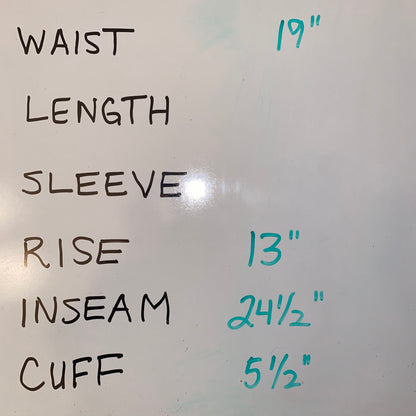 WAIST 19"
LENGTH
SLEEVE
RISE 13"
INSEAM 24½"
CUFF 5½"